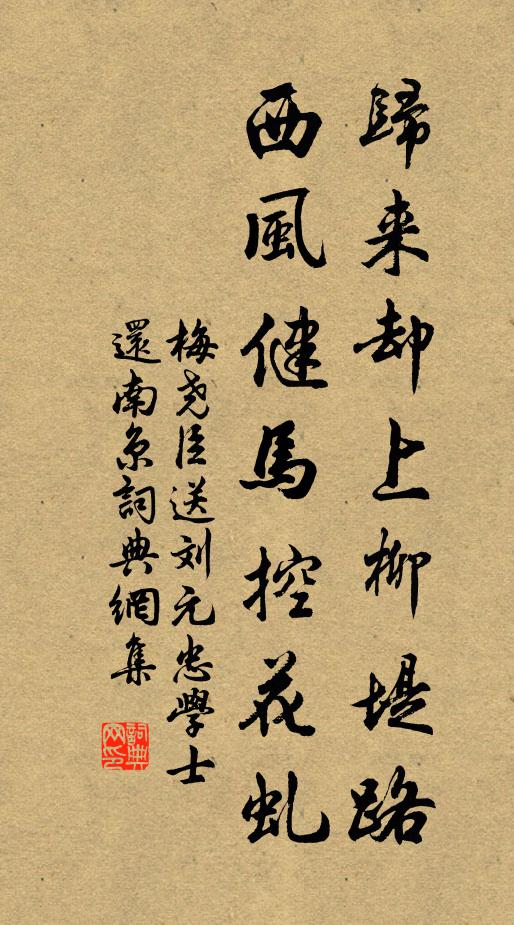 歸来却上柳堤路
西風健馬控花虬
梅尧臣送刘元忠學士
還南京詞典網集
詞典网印